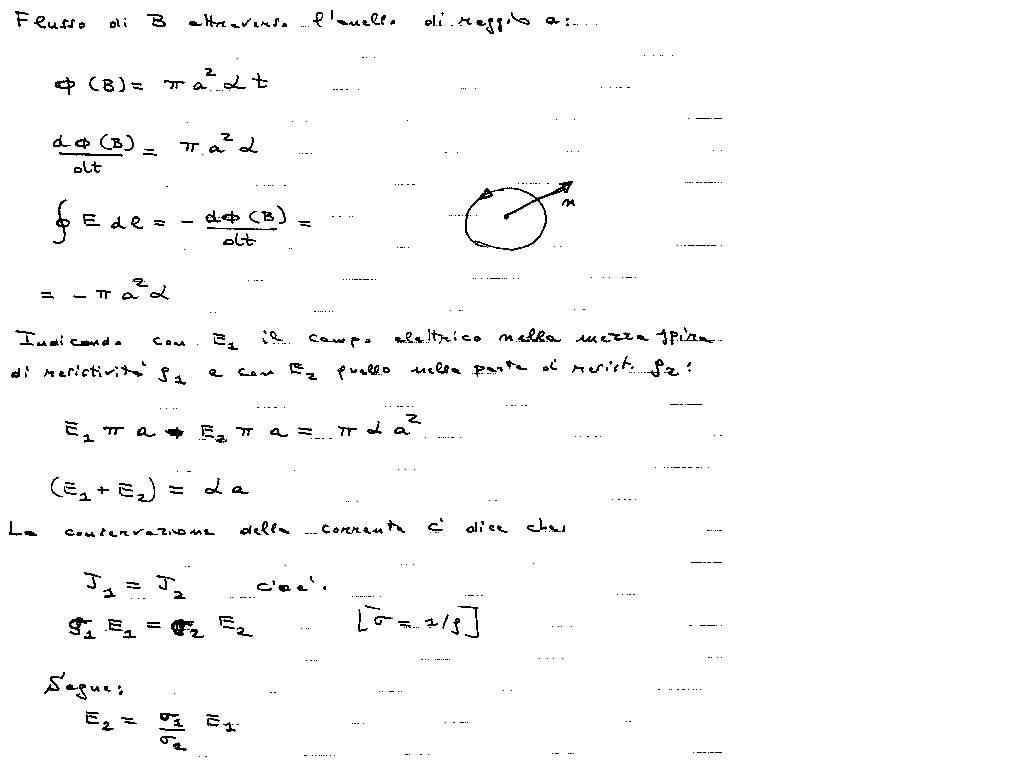 Flusso di B attraverso l'anello di raggio a:
Φ (B) = π a² α t
dΦ(B)/dt = π a² α
∮ E dl = - dΦ(B)/dt =
n
= - π a² α
Indicando con E₁ il campo elettrico nella mezza spira
di resistività ρ₁ e con E₂ quello nella parte di resist. ρ₂:
E₁ π a + E₂ π a = π α a²
(E₁ + E₂) = α a
La conservazione della corrente ci dice che:
J₁ = J₂ cioè:
σ₁ E₁ = σ₂ E₂ [σ = 1/ρ]
Segue:
E₂ = σ₁/σ₂ E₁